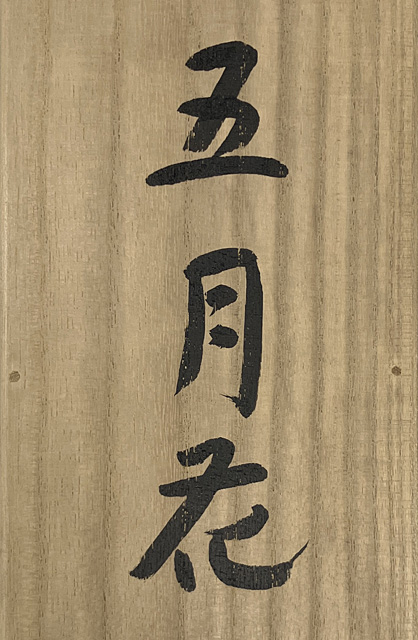 五月花